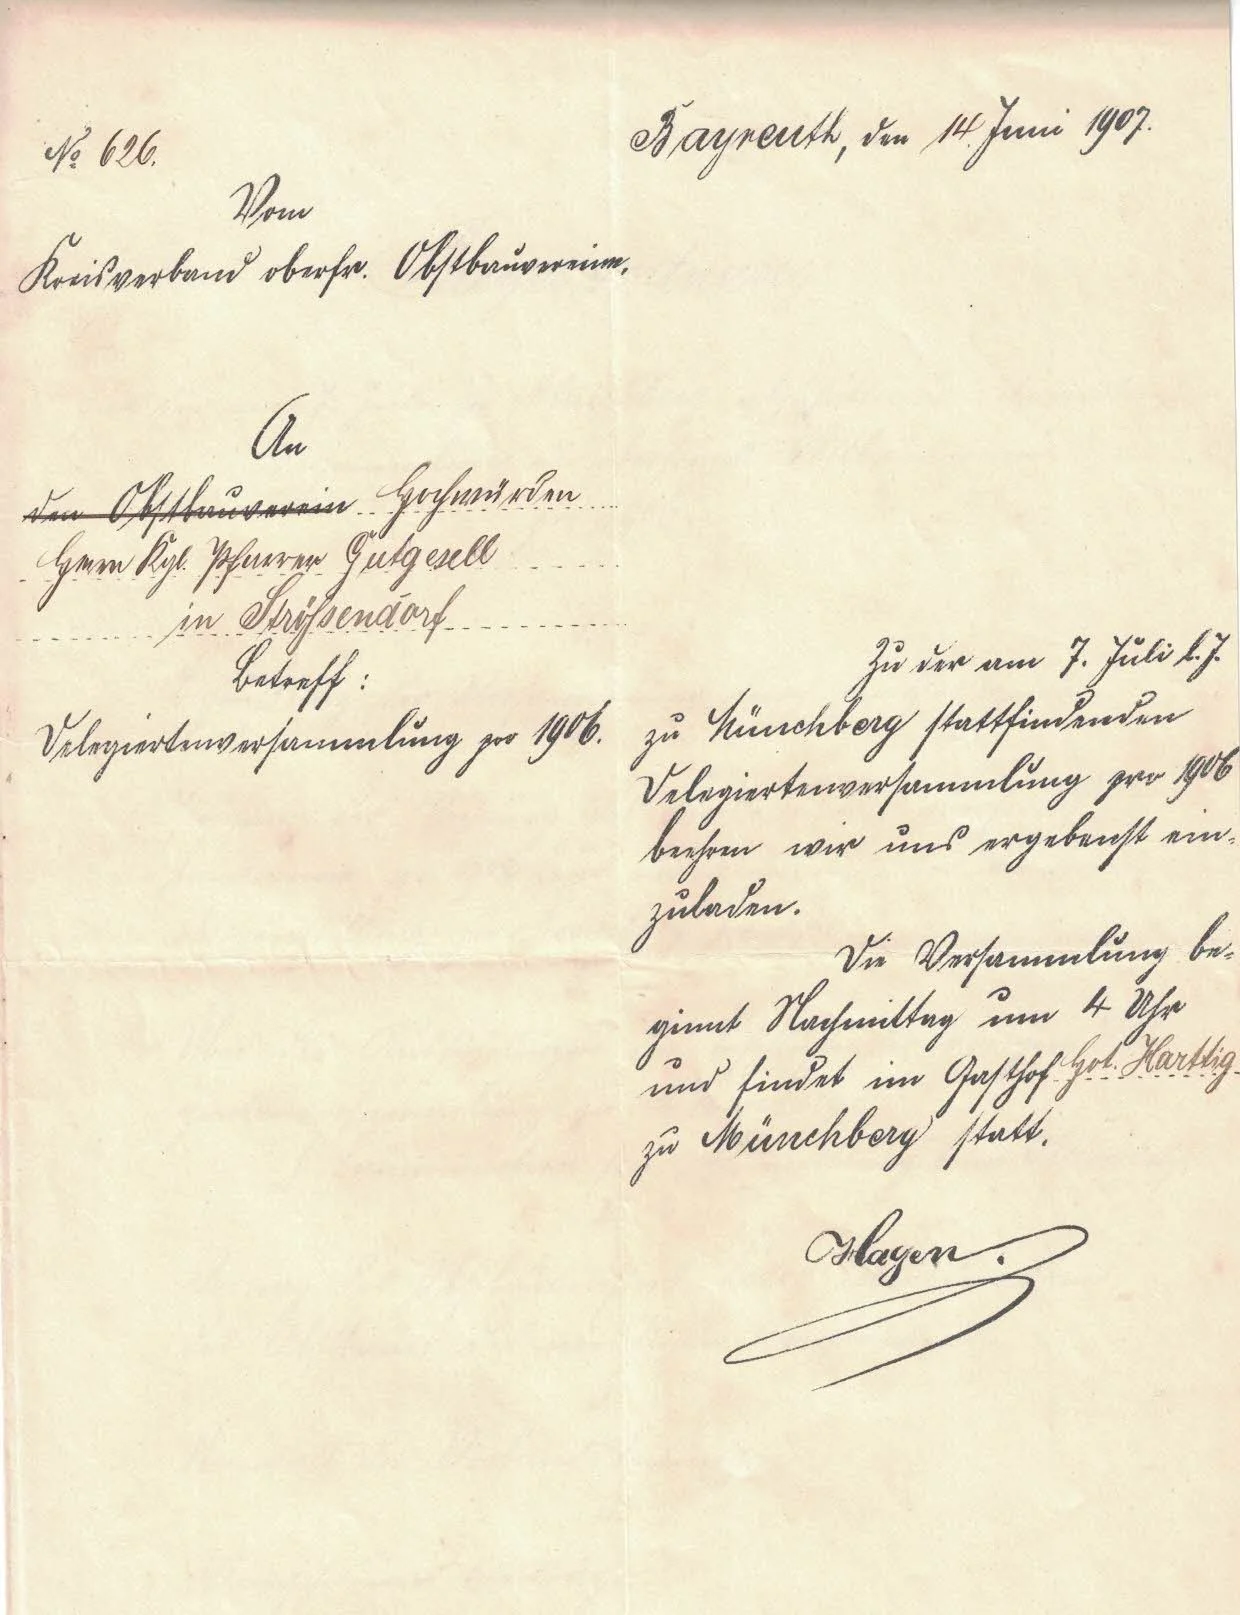 No 626.
Bayreuth, den 14. Juni 1907.
Vom
Kreisverband oberfr. Obstbauvereine.
An
den Obstbauverein Hochwürden
Herrn Kgl. Pfarrer Gutgesell
in Strössendorf
Betreff:
Delegiertenversammlung pro 1906.
Zu der am 7. Juli l. J.
zu Münchberg stattfindenden
Delegiertenversammlung pro 1906
beehren wir uns ergebenst ein-
zuladen.
Die Versammlung be-
ginnt Nachmittag um 4 Uhr
und findet im Gasthof Hot. Harttig
zu Münchberg statt.
Hagen.